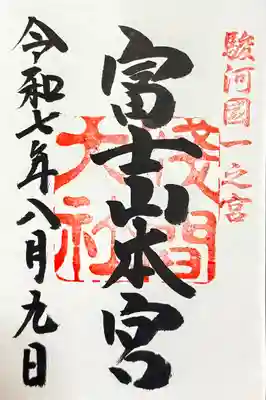 駿河國一之宮
富士山本宮
淺間
大社
令和七年八月九日